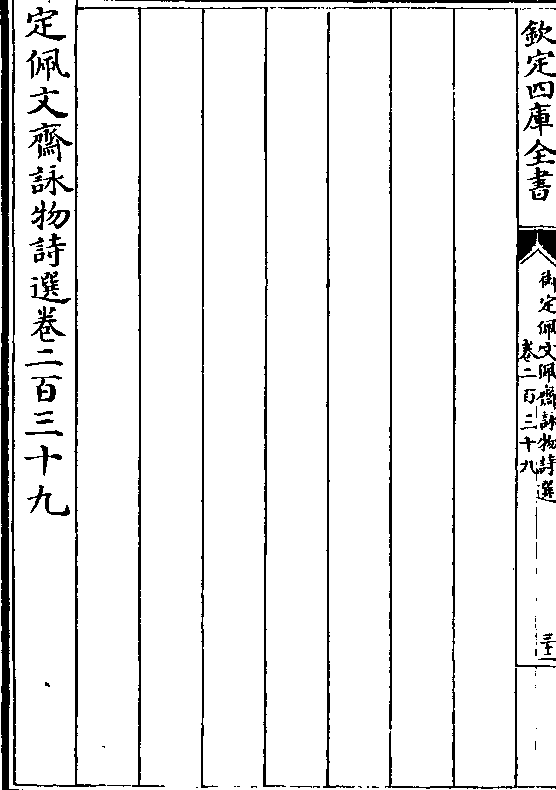 欽定四庫全書
御定佩文佩齋詠物詩選
卷二百三十九
定佩文齋詠物詩選卷二百三十九